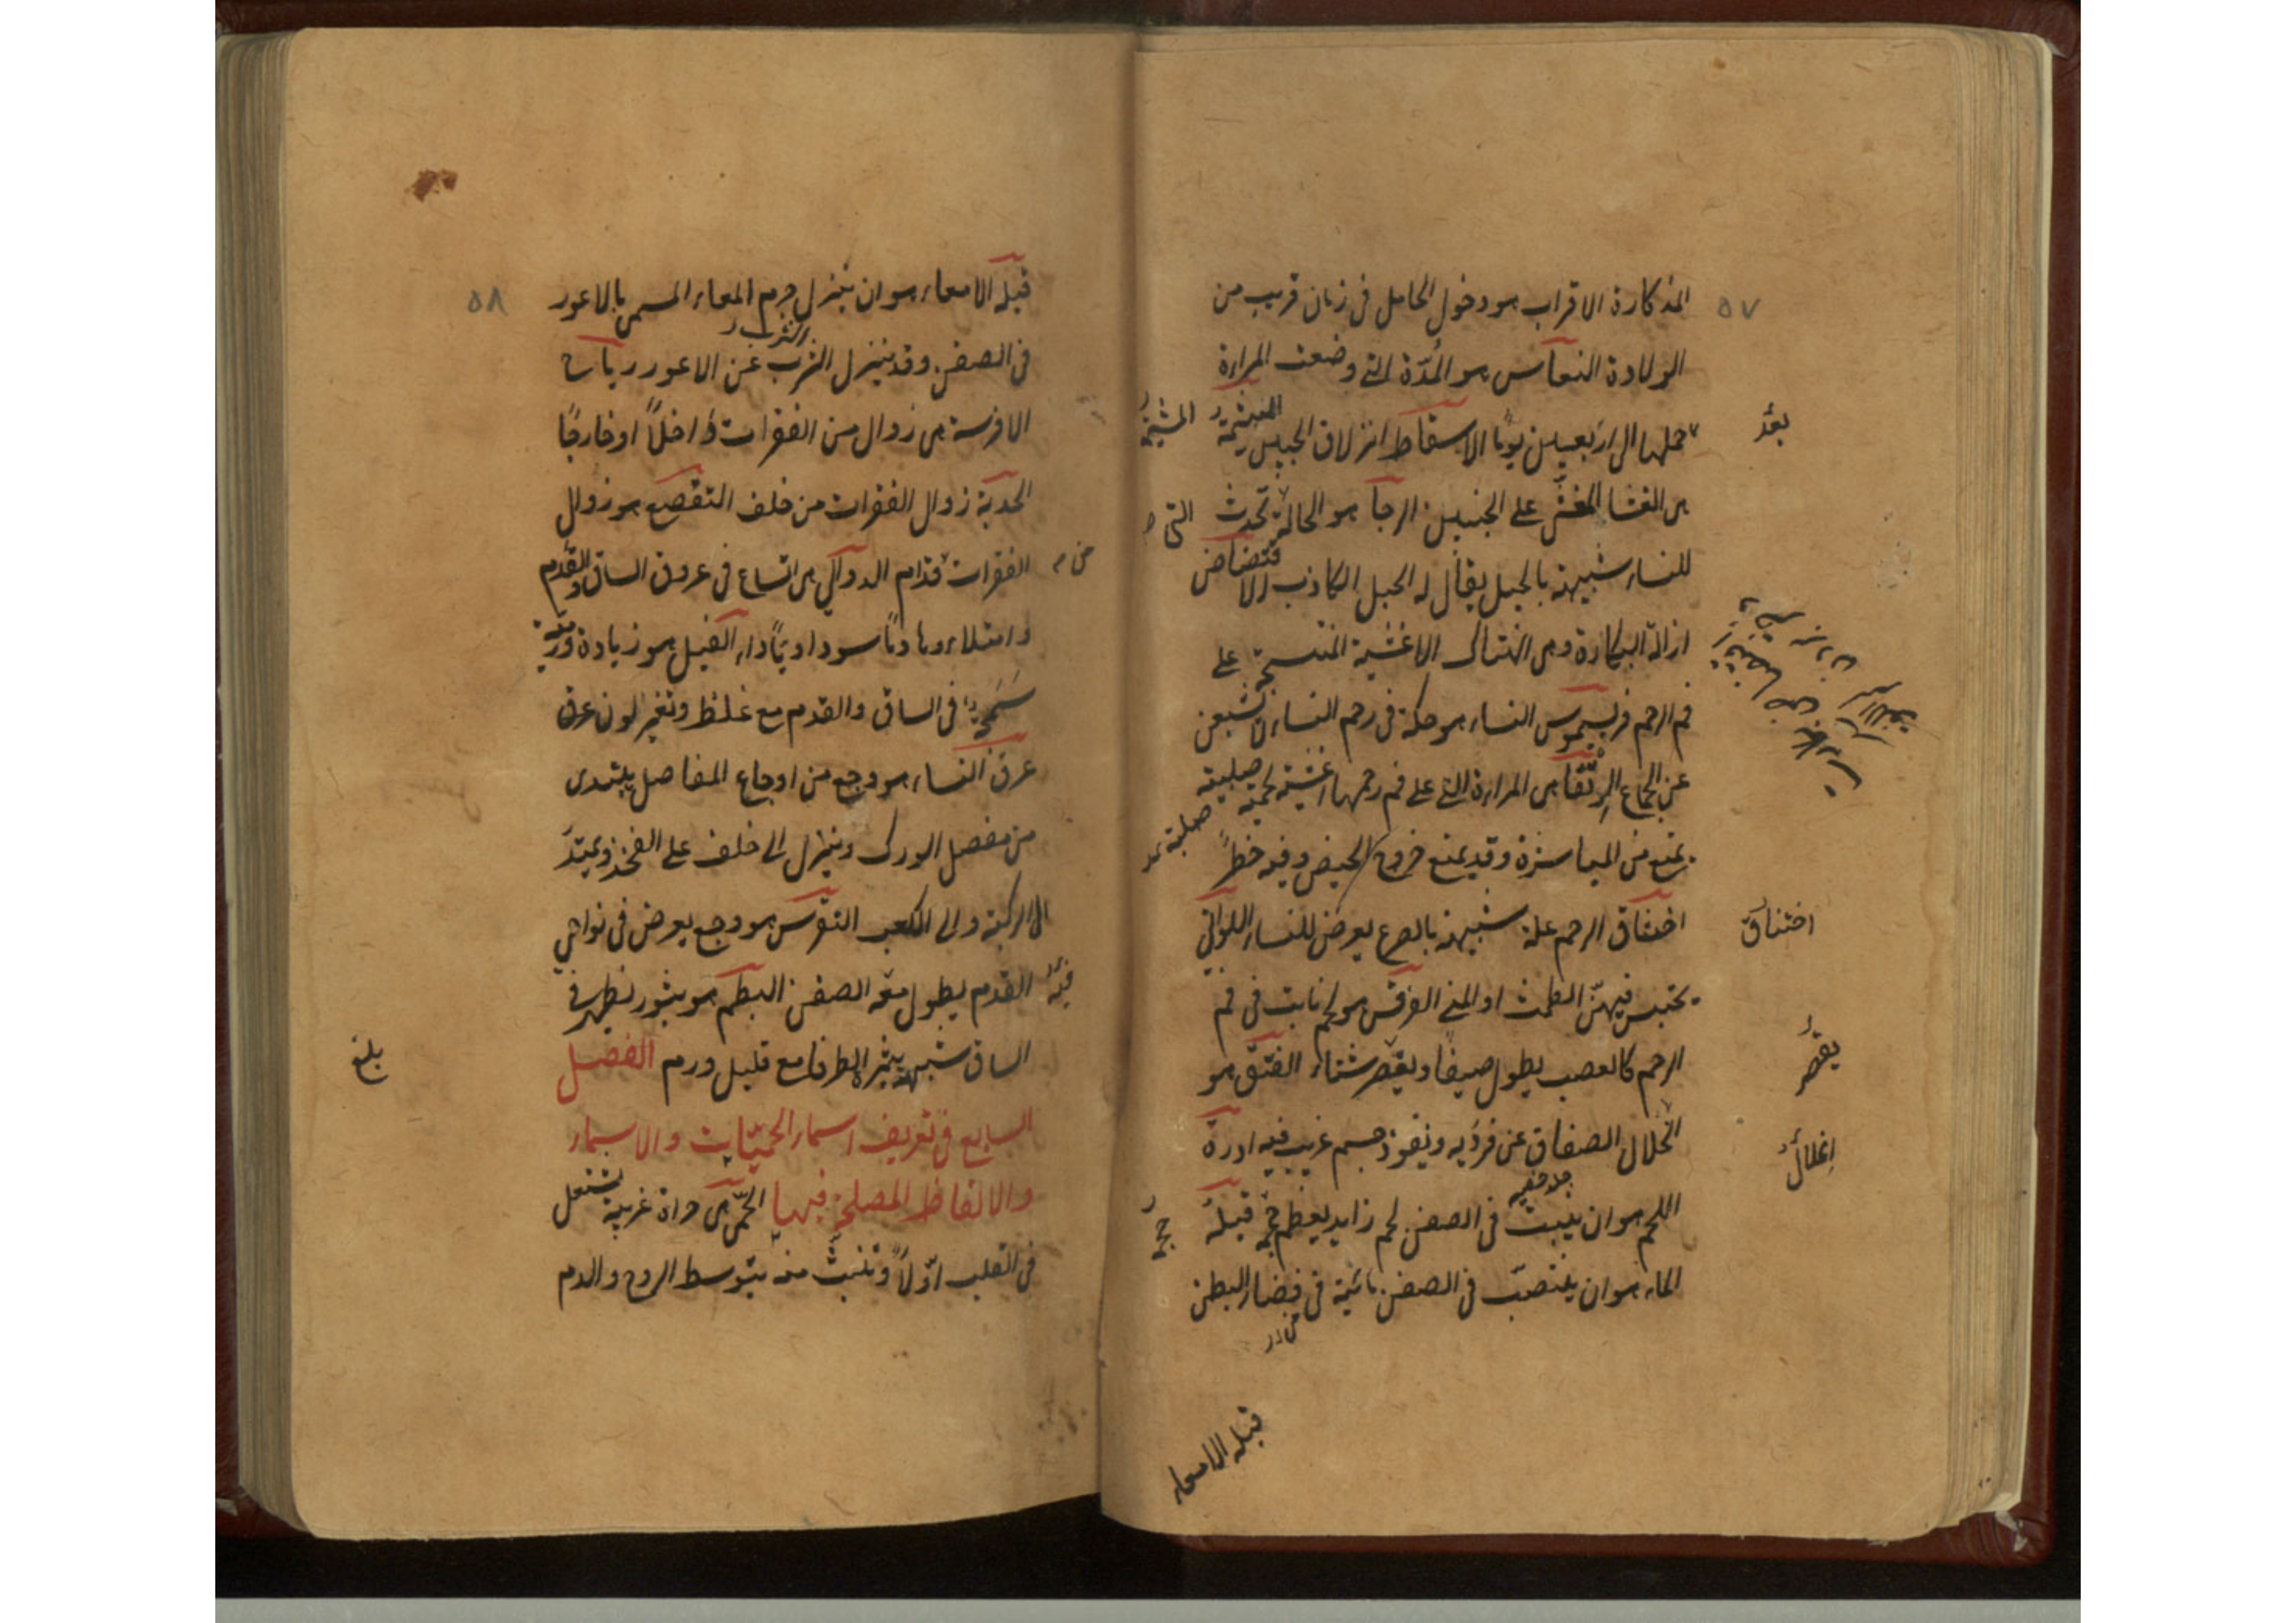 ٥٧
المذكارة الاقراب هو دخول الحامل فى زمان قريب من
الولادة النفاس هو المُدّة التى وضعت المراءة
حملها الى اربعين يوماً الاسقاط انزلاق الجنين المشيمة
بعد
المشيمة
هى الغشا المغشّى على الجنين الرجا هو الحالة تحدث
التى
للنساء شبيهة بالحبل يقال له الحبل الكاذب الاقتضاض
ازالة البكارة وهى انهتاك الاغشية المنتسجة على
فم الرحم فريسموس النساء هو حكة فى رحم النساء لا تشبعن
عن الجماع الرتقا هى المراءة التى على فم رحمها اغشية لحمية صلبية
صلبة
تمنع من المباشرة وقد يمنع خروج الحيض وفيه خطرٌ
اختناق الرحم علة شبيهة بالصرع يعرض للنساء اللواتى
اختناق
يحتبس فيهنّ الطمث او المنى القرقس هو لحم نابت فى فم
الرحم كالعصب يطول صيفاً ويقصر شتاء الفتق هو
يقصر
انحلال الصفاق عن فرديه ونفوذ جسم غريب فيه ادرة
انحلال
اللحم هو ان ينبت فى الصفن لحم زايد يعظم حجمه قيلة
الماء هو ان ينصبّ فى الصفن مائية فى فضاء البطن
من
قيلة الامعاء
٥٨
قيلة الامعاء هو ان ينزل جرم المعاء المسمى بالاعور
فى الصفن وقد ينزل الثرب عن الاعور رياح
الثرب
الافرسة هى زوال من الفقرات داخلاً او خارجاً
الحدبة زوال الفقرات من خلف التقصع هو زوال
الفقرات قدام الدوالى هى اتساع فى عروق الساق والقدم
من
وامتلاءوها دماً سوداوياً داء الفيل هو زيادة ورمية
فى الساق والقدم مع غلظ وتغير لون عرق
عرق النساء هو وجع من اوجاع المفاصل يبتدى
من مفصل الورك وينزل الى خلف على الفخذ ويمتدّ
الى الركبة والى الكعب النقرس هو وجع يعرض فى نواحى
القدم يطول معه الصفن البطم هو بثور تظهر فى
فيه
الساق شبيهة بثمرة الطرفا مع قليل ورم الفصل
بلغ
السابع فى تعريف اسماء الحميّات والاسماء
والالفاظ المصلحة فيها الحمّى هى حراة غريبة تشتعل
فى القلب اوّلاً وتنبثّ منه بتوسط الروح والدم